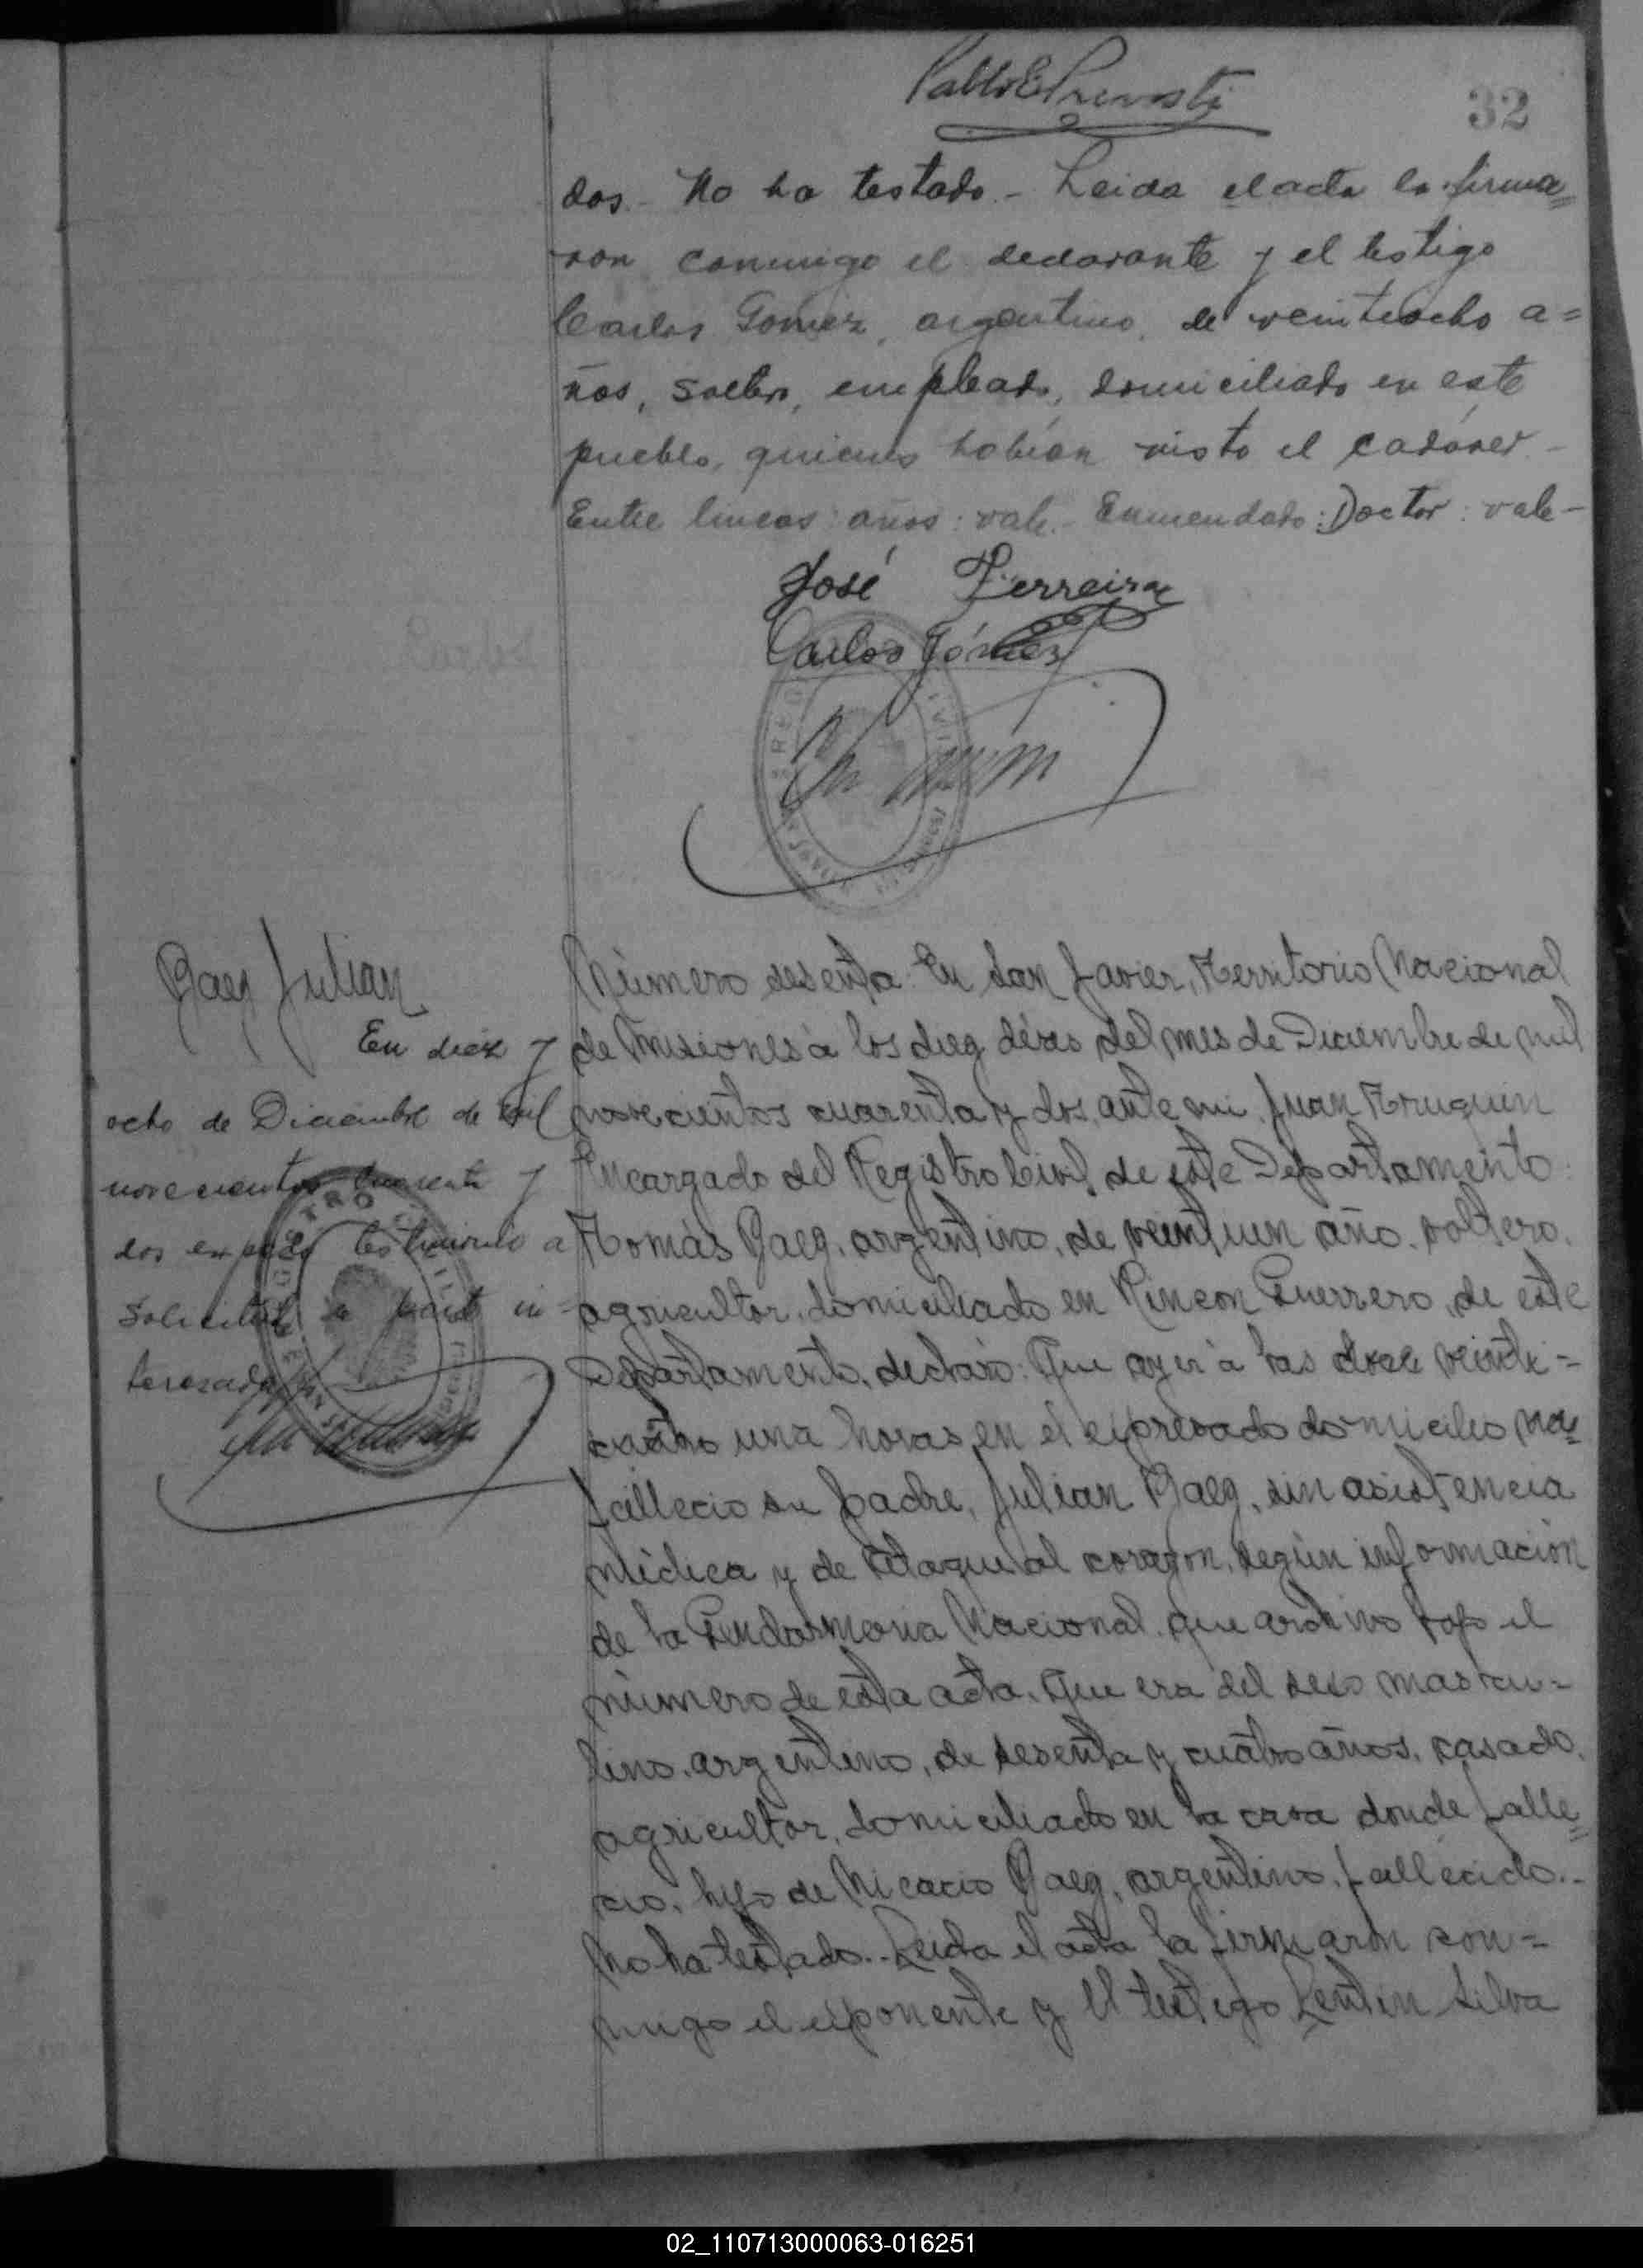 Pablo E Prevosti
32
dos.- No ha testado.- Leida el acta la firma=
ron conmigo el declarante y el testigo
Carlos Gomez, argentino, de veinteocho a=
ños, soltero, empleado, domiciliado en este
pueblo, quienes habían visto el cadáver.-
Entre lineas: años: vale.- Enmendado: Doctor: vale-
José Ferreira
Carlos Gómez
Paez Julian
En diez y
ocho de Diciembre de mil
novecientos cuarenta y
dos expido testimonio a
solicitud de parte in=
teresada
Número sesenta: En San Javier, Territorio Nacional
de Misiones a los diez días del mes de Diciembre de mil
novecientos cuarenta y dos, ante mi Juan Truquin
Encargado del Registro Civil de este Departamento:
Tomás Paez, argentino, de veintiun año, soltero,
agricultor, domiciliado en Rincon Guerrero, de este
Departamento, declaró: Que ayer a las doce veinte=
cuatro una horas, en el expresado domicilio
fallecio su padre, Julian Paez, sin asistencia
médica y de ataque al corazon, según información
de la Gendarmeria Nacional que archivo bajo el
número de esta acta. Que era del sexo mascu=
lino, argentino, de sesenta y cuatro años, casado,
agricultor, domiciliado en la casa donde falle=
cio, hijo de Nicacio Paez, argentino, fallecido.-
No ha testado.- Leida el acta la firmaron con=
migo el exponente y el testigo Silva
02_110713000063-016251